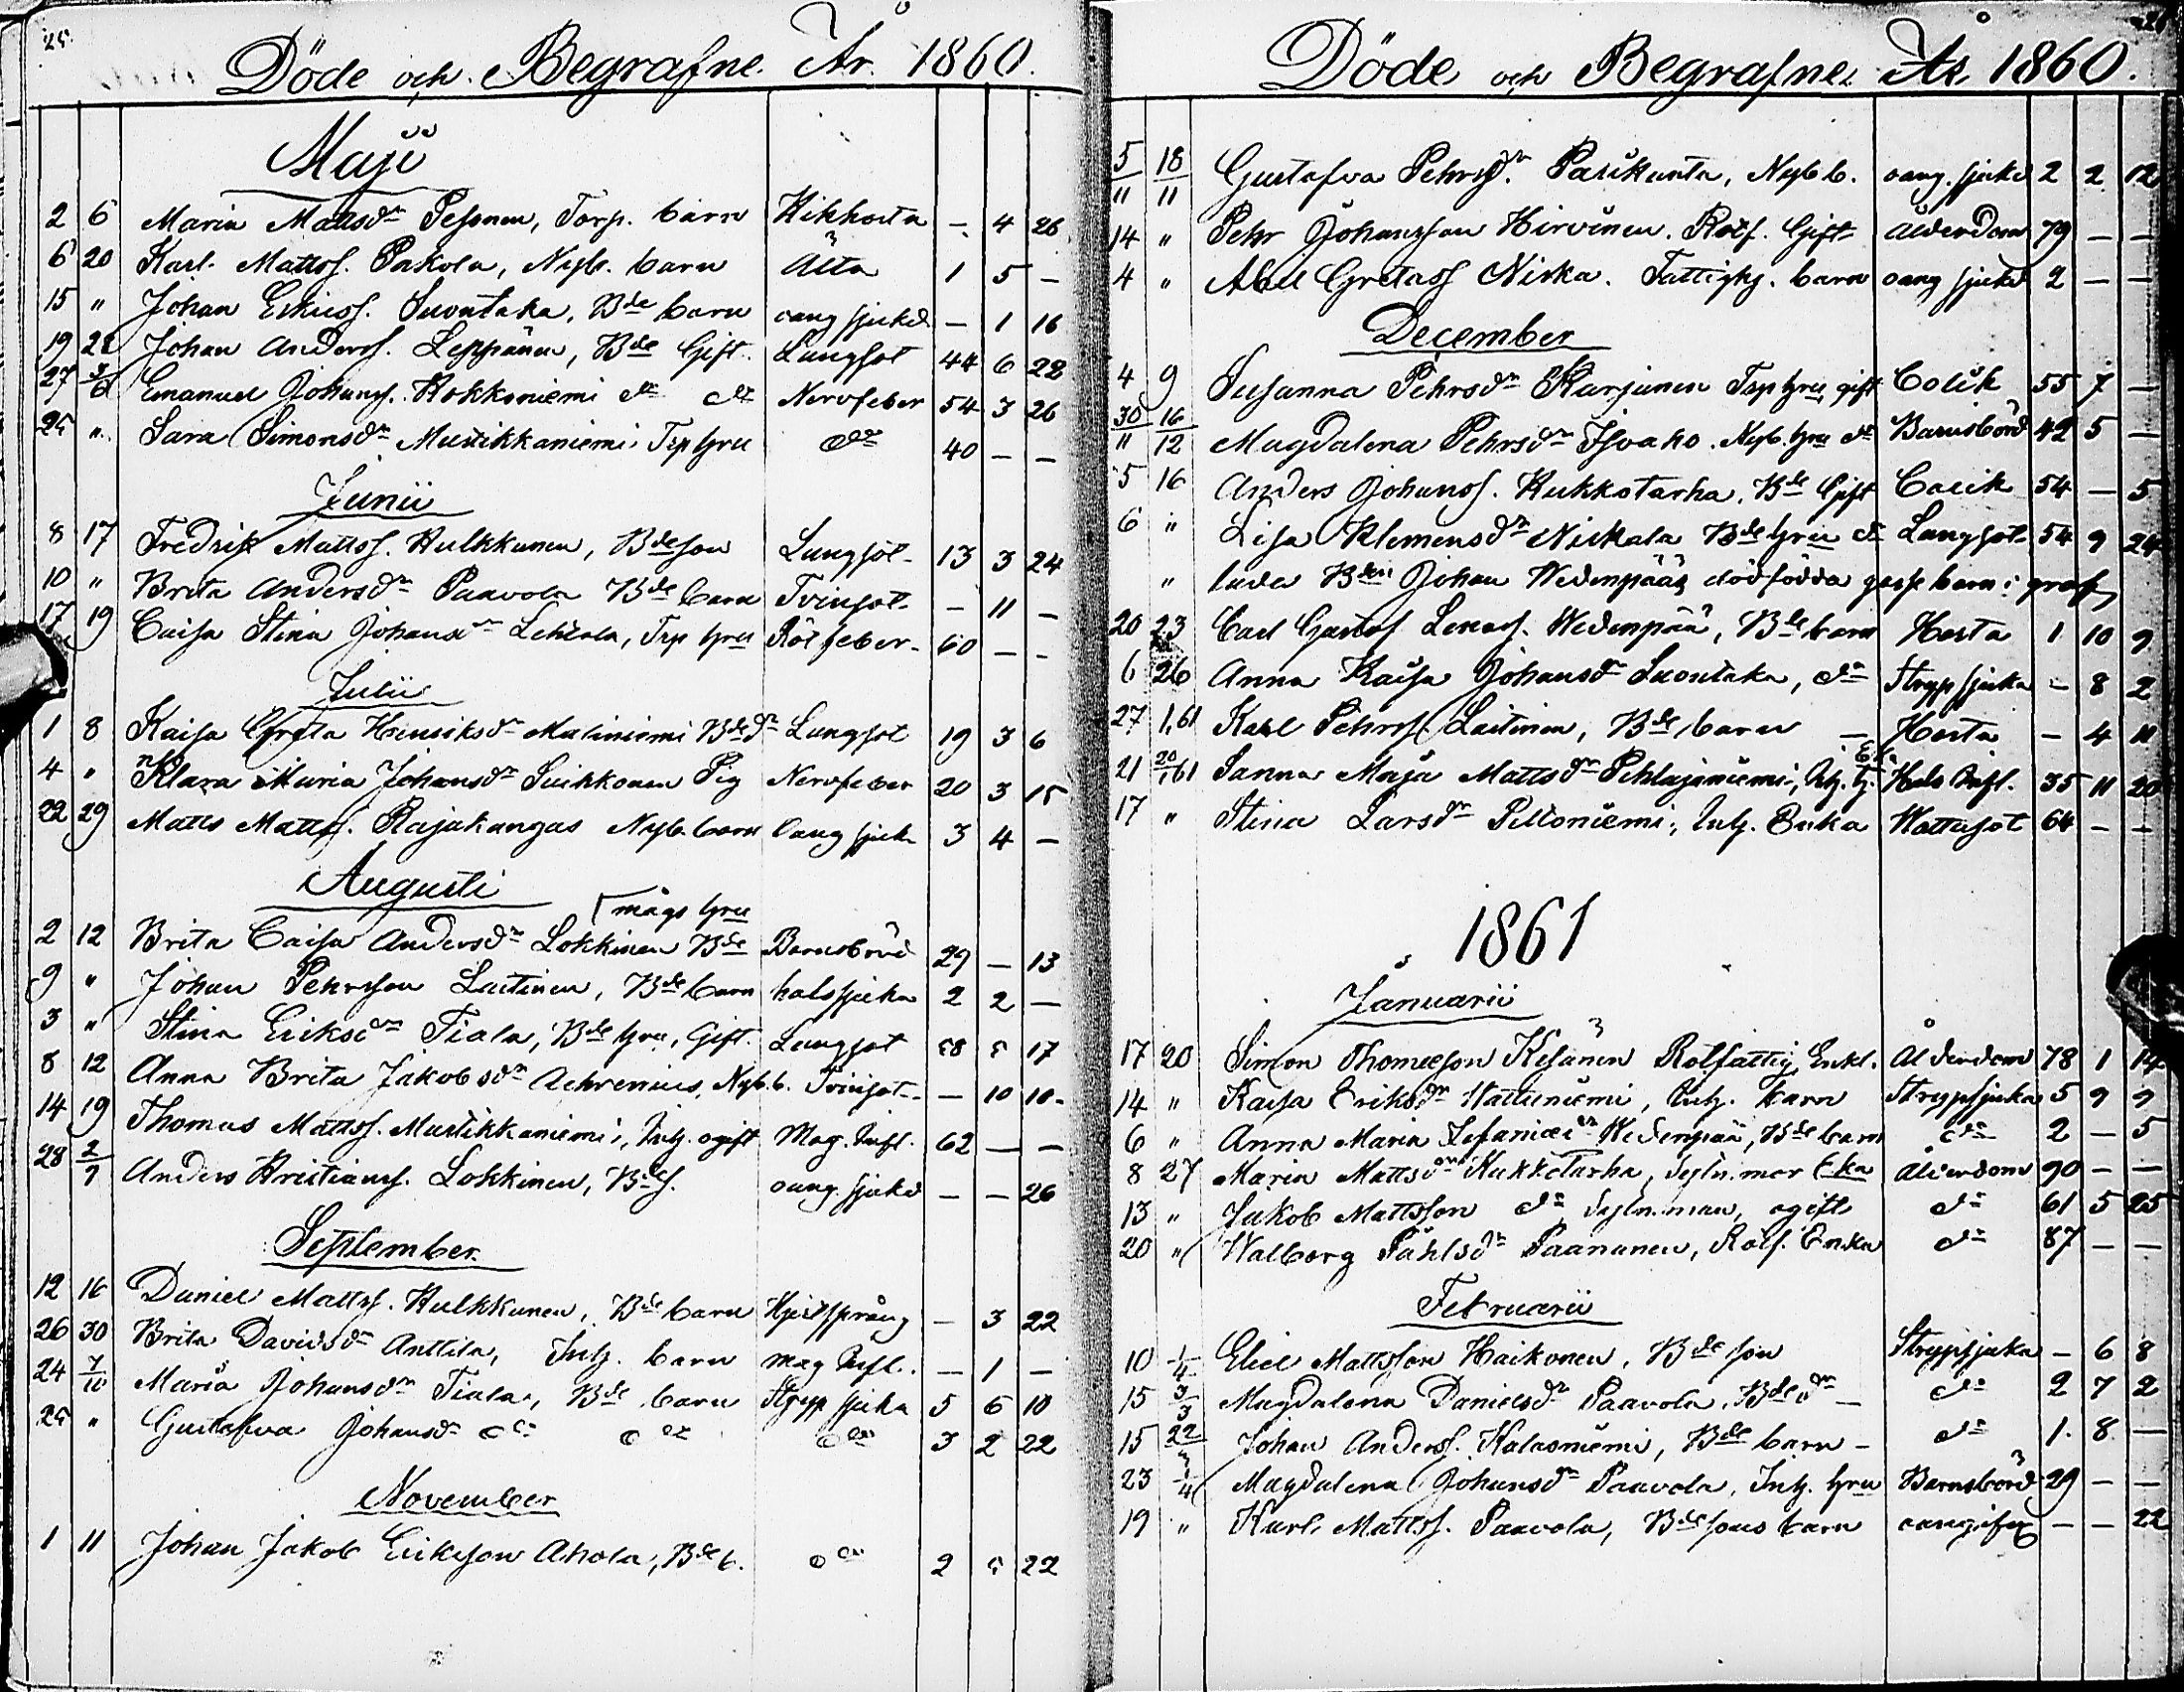 25.
Döde och Begrafne År 1860.
Maji
2 6 Maria Mattsdr Pesonen, Torp. barn Kikhosta - 4 26
6 20 Karl Mattss. Pakola, Nyb. barn Älta 1 5 -
15 " Johan Erkiess. Suontaka, Bde barn oang sjukd - 1 16
19 28 Johan Anderss. Leppänen, Bde Gift. Lungsot 44 6 22
27 3/6 Emanuel Johanss. Kokkoniemi do do Nervfeber 54 3 26
25 " Sara Simonsdr Mustikkaniemi Trp hru do 40 - -
Junii
8 17 Fredrik Mattss. Kulkkunen, Bde son Lungsot 13 3 24
10 " Brita Andersdr Paavola Bde barn Tvinsot - 11 -
17 19 Caisa Stina Johansdr Lehtola, Trp hru Rötfeber 60 - -
Julii
1 8 Kaisa Greta Henriksdr Maliniemi Bdedr Lungsot 19 3 6
4 " Klara Maria Johansdr Suikkonen Pig Nervfeber 20 3 15
22 29 Matts Mattss. Rajakangas Nyb. barn Oang sjuk 3 4 -
Augusti
mågs hru
2 12 Brita Caisa Andersdr Lokkinen Bde Barnsbörd 29 - 13
9 " Johan Pehrsson Laitinen, Bde barn halssjuka 2 2 -
3 " Stina Eriksdr Tiala, Bde hru, Gift. Lungsot 58 5 17
8 12 Anna Brita Jakobsdr Achrenius, Nyb. b. Tvinsot - 10 10
14 19 Thomas Mattss. Mustikkaniemi, Inh. ogift Mag. Infl. 62 - -
28 2/9 Anders Kristianss. Lokkinen, Bdes. oang. sjukd - - 26
September
12 16 Daniel Mattss. Kulkkunen, Bde barn Hjertsprång - 3 22
26 30 Brita Davidsdr Anttila, Inh. barn Mag Infl. - 1 -
24 7/10 Maria Johansdr Tiala, Bde barn Stryp sjuka 5 6 10
25 " Gustafva Johansdr do do do 3 2 22
November
1 11 Johan Jakob Eriksson Ahola, Bde b. do 2 5 22
Döde och Begrafne År 1860.
5/11 18/11 Gustafva Pehrsdr. Pasikanta, Nyb b. oang. sjukd 2 2 12
14 " Pehr Johansson Hirvinen. Rotf. Gift Ålderdom 79 - -
4 " Abel Gretass Niska. Fattighj. barn oang sjukd 2 - -
December
4 9 Susanna Pehrsdr Karjanen Trp hru, gift Colik 55 7 -
30/11 16/12 Magdalena Pehrsdr Isoaho. Nyb. hru do Barnsbörd 42 5 -
5 16 Anders Johanss. Kukkotarha, Bde Gift Colik 54 - 5
6 " Lisa Klemensdr Niskala Bde hru do Lungsot 54 9 24
" Johan Wedenpääs dödfödda gosse barn i graf
20 23 Carl Gustaf Wedenpää, Bde barn Hosta 1 10 9
6 26 Anna Kaisa Johansdr Suontaka, do Strypsjuka - 8 2
27 1,61 Karl Pehrss. Laitinen, Bde barn - Hosta - 4 11
21 20/1 61 Sanna Maja Mattsdr Pehlajaniemi, Inh. h. Hals Infl. 35 11 20
17 " Stina Larsdr Peltoniemi, Inh. Enka Wattusot 64 - -
1861
Januarii
17 20 Simon Thomasson Kesänen Rotfattig, Enkl. Ålderdom 78 1 14
14 " Kaisa Eriksdr Hattuniemi, Inh. barn Strypsjuka 5 9 9
6 " Anna Maria Wedenpää, Bde barn do 2 - 5
8 27 Maria Mattsdr Kukkotarha, Sytn. mor Eka Ålderdom 90 - -
13 " Jakob Mattsson do Sytn. man, ogift do 61 5 25
20 " Walborg Påhlsdr Paananen, Rotf. Enka do 87 - -
Februarii
10 1/4 Eliel Mattsson Haikonen, Bde son Strypsjuka - 6 8
15 3/3 Magdalena Danielsdr Paavola, Bde dr - do 2 7 2
15 22/3 Johan Anderss. Kalasniemi, Bde barn - do 1 8 -
23 1/4 Magdalena Johansdr Paavola, Inh. hru Barnsbörd 29 - -
19 " Karl Mattss. Paavola, Bde sons barn oangifven - - 22